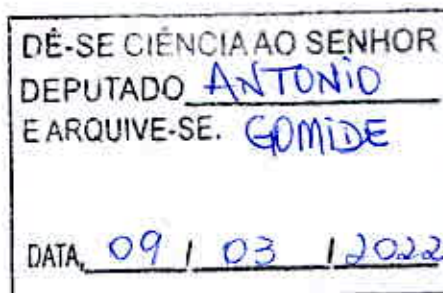 DÊ-SE CIÊNCIA AO SENHOR
DEPUTADO ANTONIO
E ARQUIVE-SE. GOMIDE
DATA, 09 / 03 / 2022